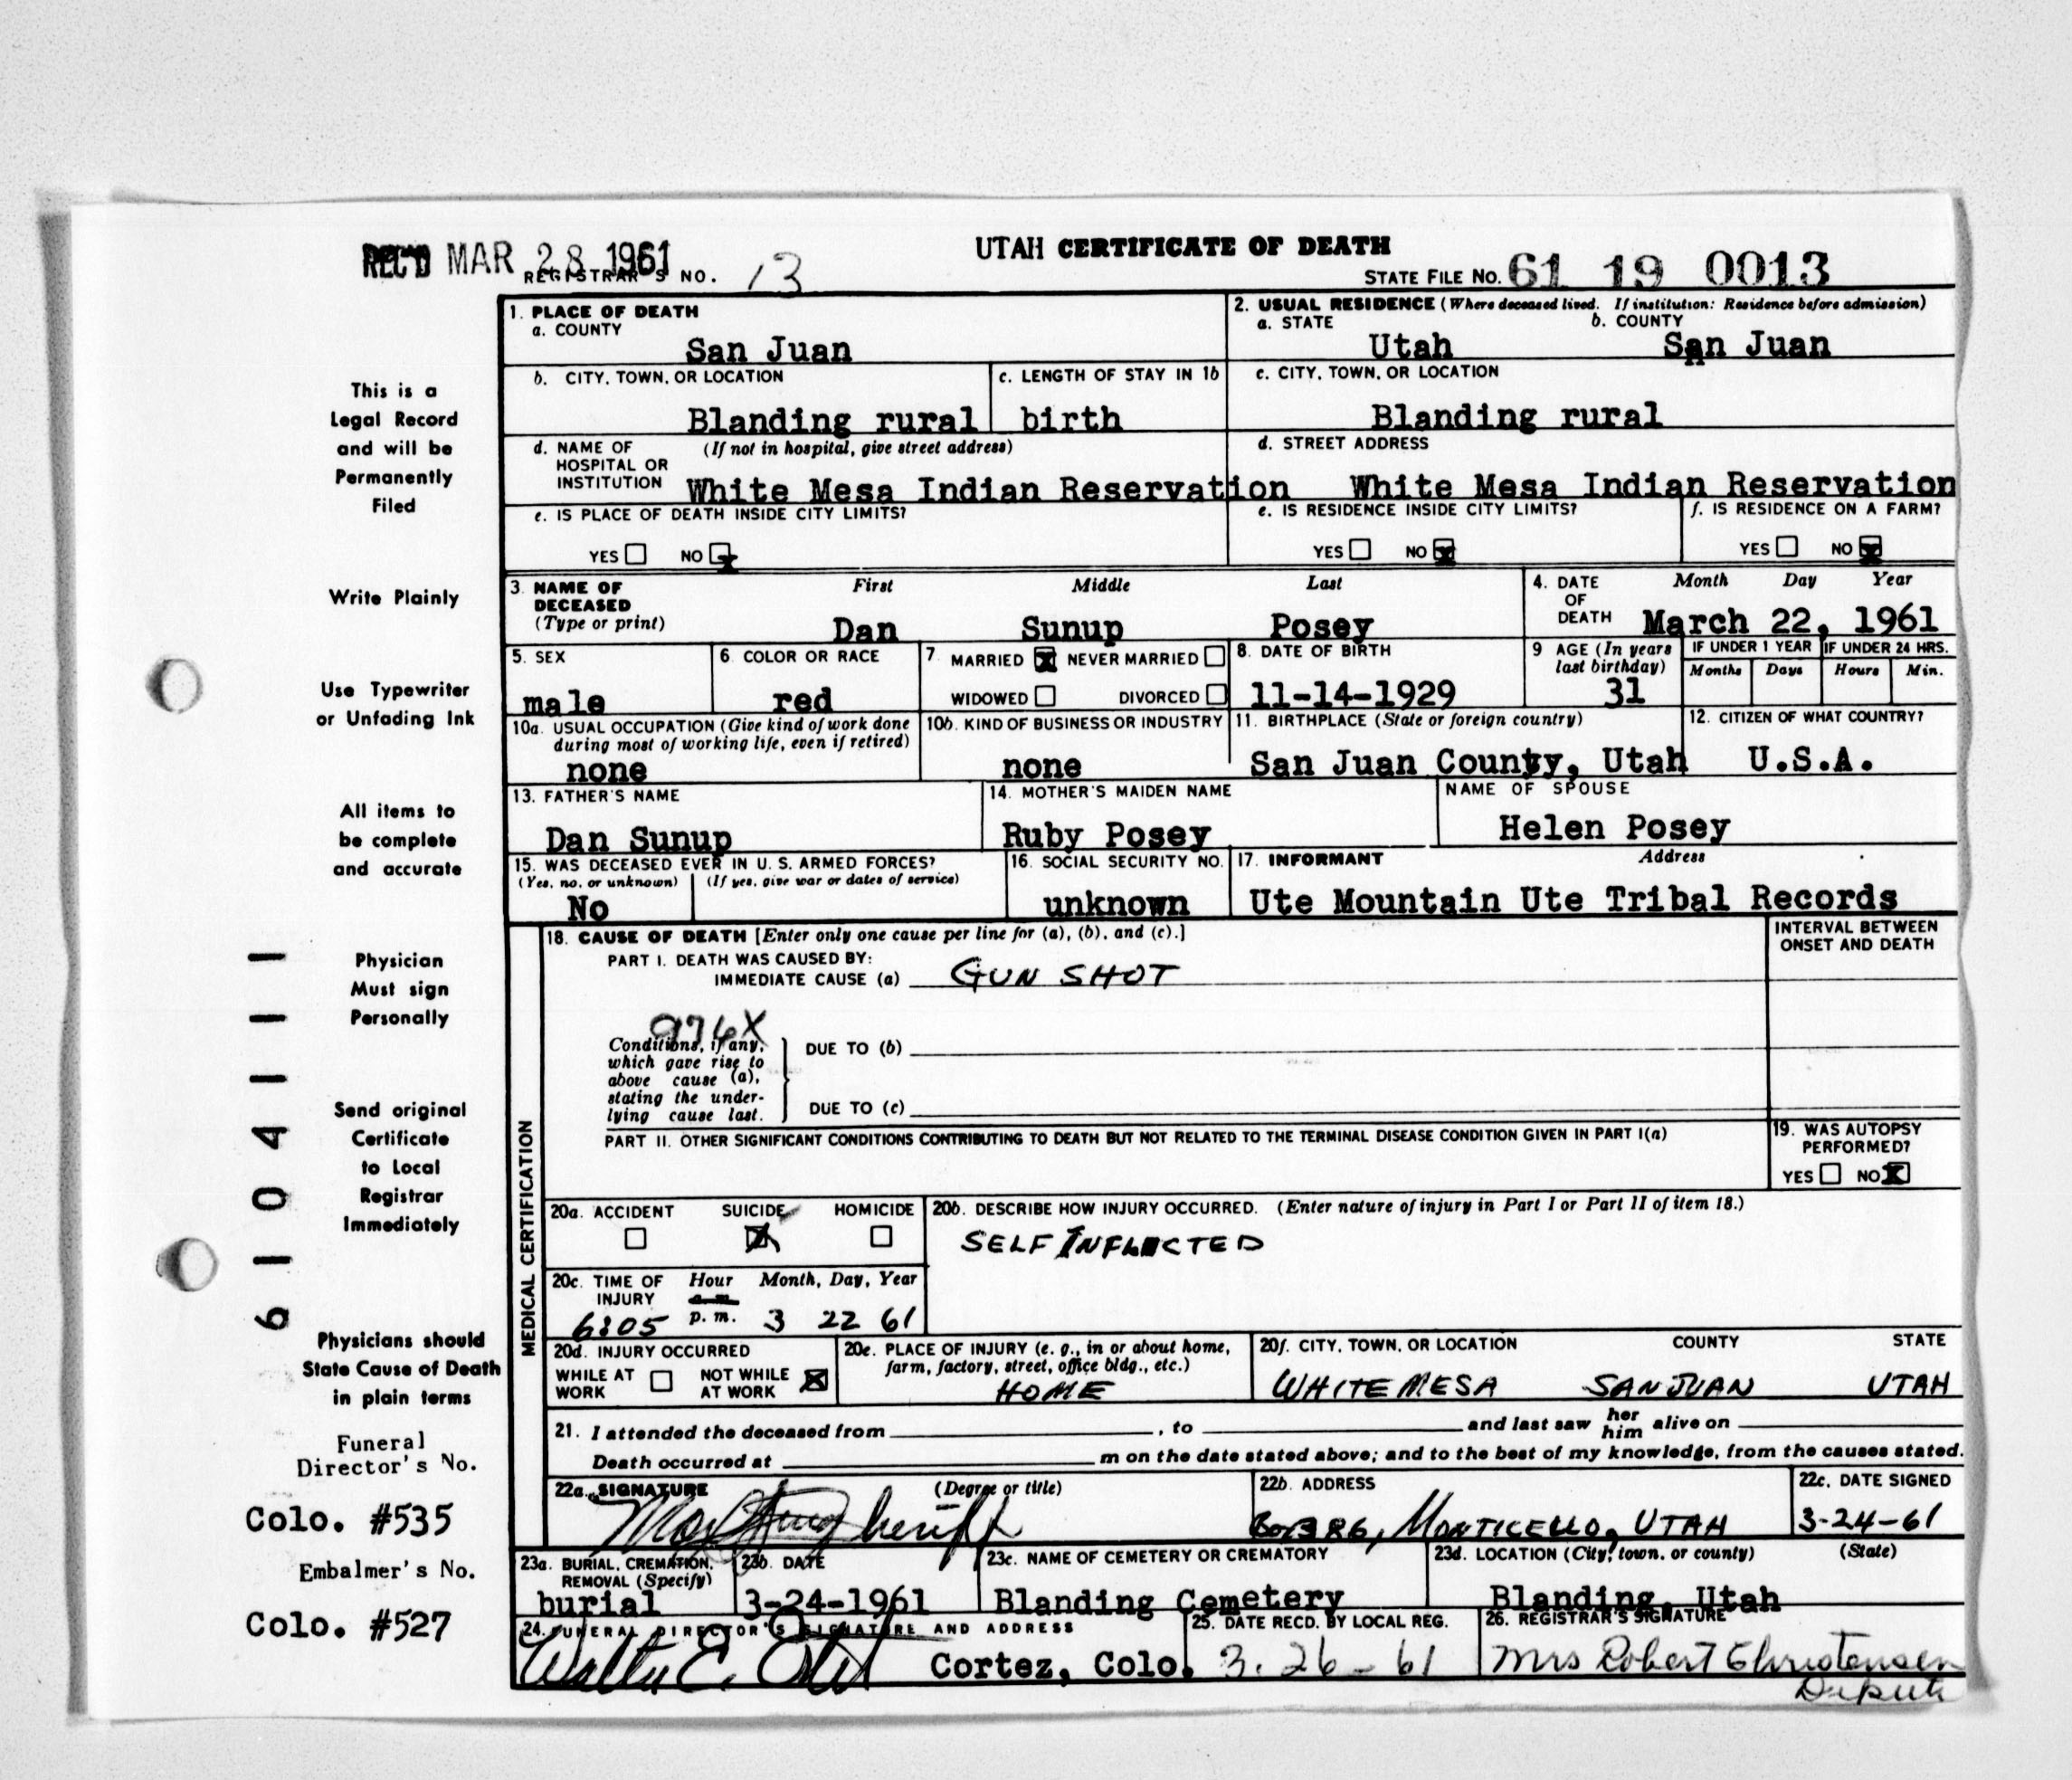 REC'D MAR 28 1961
UTAH CERTIFICATE OF DEATH
REGISTRAR'S NO. 13
STATE FILE No. 61 19 0013
1. PLACE OF DEATH
a. COUNTY
San Juan
2. USUAL RESIDENCE (Where deceased lived. If institution: Residence before admission)
a. STATE b. COUNTY
Utah San Juan
b. CITY, TOWN, OR LOCATION
Blanding rural
c. LENGTH OF STAY IN 1b
birth
c. CITY, TOWN, OR LOCATION
Blanding rural
d. NAME OF HOSPITAL OR INSTITUTION (If not in hospital, give street address)
White Mesa Indian Reservation
d. STREET ADDRESS
White Mesa Indian Reservation
e. IS PLACE OF DEATH INSIDE CITY LIMITS?
YES NO x
e. IS RESIDENCE INSIDE CITY LIMITS?
YES NO x
f. IS RESIDENCE ON A FARM?
YES NO x
3. NAME OF DECEASED (Type or print)
First Middle Last
Dan Sunup Posey
4. DATE OF DEATH
Month Day Year
March 22, 1961
5. SEX
male
6. COLOR OR RACE
red
7. MARRIED x NEVER MARRIED
WIDOWED DIVORCED
8. DATE OF BIRTH
11-14-1929
9 AGE (In years last birthday)
31
IF UNDER 1 YEAR
Months Days
IF UNDER 24 HRS.
Hours Min.
10a. USUAL OCCUPATION (Give kind of work done during most of working life, even if retired)
none
10b. KIND OF BUSINESS OR INDUSTRY
none
11. BIRTHPLACE (State or foreign country)
San Juan County, Utah
12. CITIZEN OF WHAT COUNTRY?
U.S.A.
13. FATHER'S NAME
Dan Sunup
14. MOTHER'S MAIDEN NAME
Ruby Posey
NAME OF SPOUSE
Helen Posey
15. WAS DECEASED EVER IN U. S. ARMED FORCES?
(Yes, no. or unknown) (If yes, give war or dates of service)
No
16. SOCIAL SECURITY NO.
unknown
17. INFORMANT Address
Ute Mountain Ute Tribal Records
MEDICAL CERTIFICATION
18. CAUSE OF DEATH [Enter only one cause per line for (a), (b), and (c).]
INTERVAL BETWEEN ONSET AND DEATH
PART I. DEATH WAS CAUSED BY:
IMMEDIATE CAUSE (a) GUN SHOT
976X
Conditions, if any, which gave rise to above cause (a), stating the under-lying cause last.
DUE TO (b)
DUE TO (c)
PART II. OTHER SIGNIFICANT CONDITIONS CONTRIBUTING TO DEATH BUT NOT RELATED TO THE TERMINAL DISEASE CONDITION GIVEN IN PART I(a)
19. WAS AUTOPSY PERFORMED?
YES NO X
20a. ACCIDENT SUICIDE HOMICIDE
20b. DESCRIBE HOW INJURY OCCURRED. (Enter nature of injury in Part I or Part II of item 18.)
SELF INFLICTED
20c. TIME OF INJURY Hour Month, Day, Year
a. m.
6:05 p. m. 3 22 61
20d. INJURY OCCURRED
WHILE AT WORK NOT WHILE AT WORK X
20e. PLACE OF INJURY (e. g., in or about home, farm, factory, street, office bldg., etc.)
HOME
20f. CITY, TOWN, OR LOCATION COUNTY STATE
WHITE MESA SAN JUAN UTAH
21. I attended the deceased from , to and last saw her him alive on
Death occurred at m on the date stated above; and to the best of my knowledge, from the causes stated.
22a. SIGNATURE (Degree or title)
Sheriff
22b. ADDRESS
Box 386, MONTICELLO, UTAH
22c. DATE SIGNED
3-24-61
23a. BURIAL, CREMATION, REMOVAL (Specify)
burial
23b. DATE
3-24-1961
23c. NAME OF CEMETERY OR CREMATORY
Blanding Cemetery
23d. LOCATION (City, town, or county) (State)
Blanding, Utah
24. FUNERAL DIRECTOR'S SIGNATURE AND ADDRESS
Walter E. Cortez, Colo.
25. DATE RECD. BY LOCAL REG.
3. 26 - 61
26. REGISTRAR'S SIGNATURE
Mrs Robert Christensen
This is a
Legal Record
and will be
Permanently
Filed
Write Plainly
Use Typewriter
or Unfading Ink
All items to
be complete
and accurate
Physician
Must sign
Personally
Send original
Certificate
to Local
Registrar
Immediately
Physicians should
State Cause of Death
in plain terms
Funeral
Director's No.
Colo. #535
Embalmer's No.
Colo. #527
6 1 0 4 1 1 1